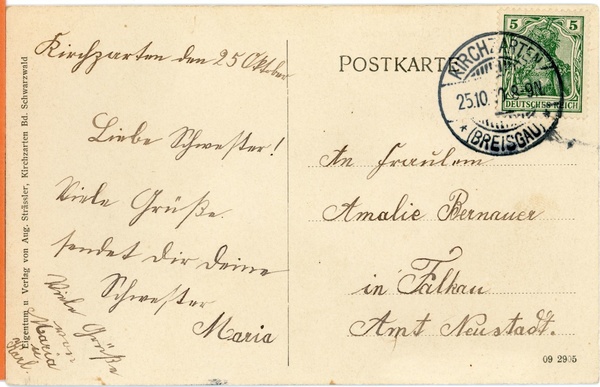 Kirchzarten den 25 Oktober
Liebe Schwester!
Viele Grüße.
sendet Dir Deine
Schwester
Maria
Viele Grüße
von
Maria
u
Karl.
Eigentum u Verlag von Aug. Strässler, Kirchzarten Bd. Schwarzwald
POSTKARTE
KIRCHZARTEN
25.10. 8-9N.
* (BREISGAU) *
5 5
DEUTSCHES REICH
An Fraulein
Amalie Bernauer
in Falkau
Amt Neustadt.
09 2905